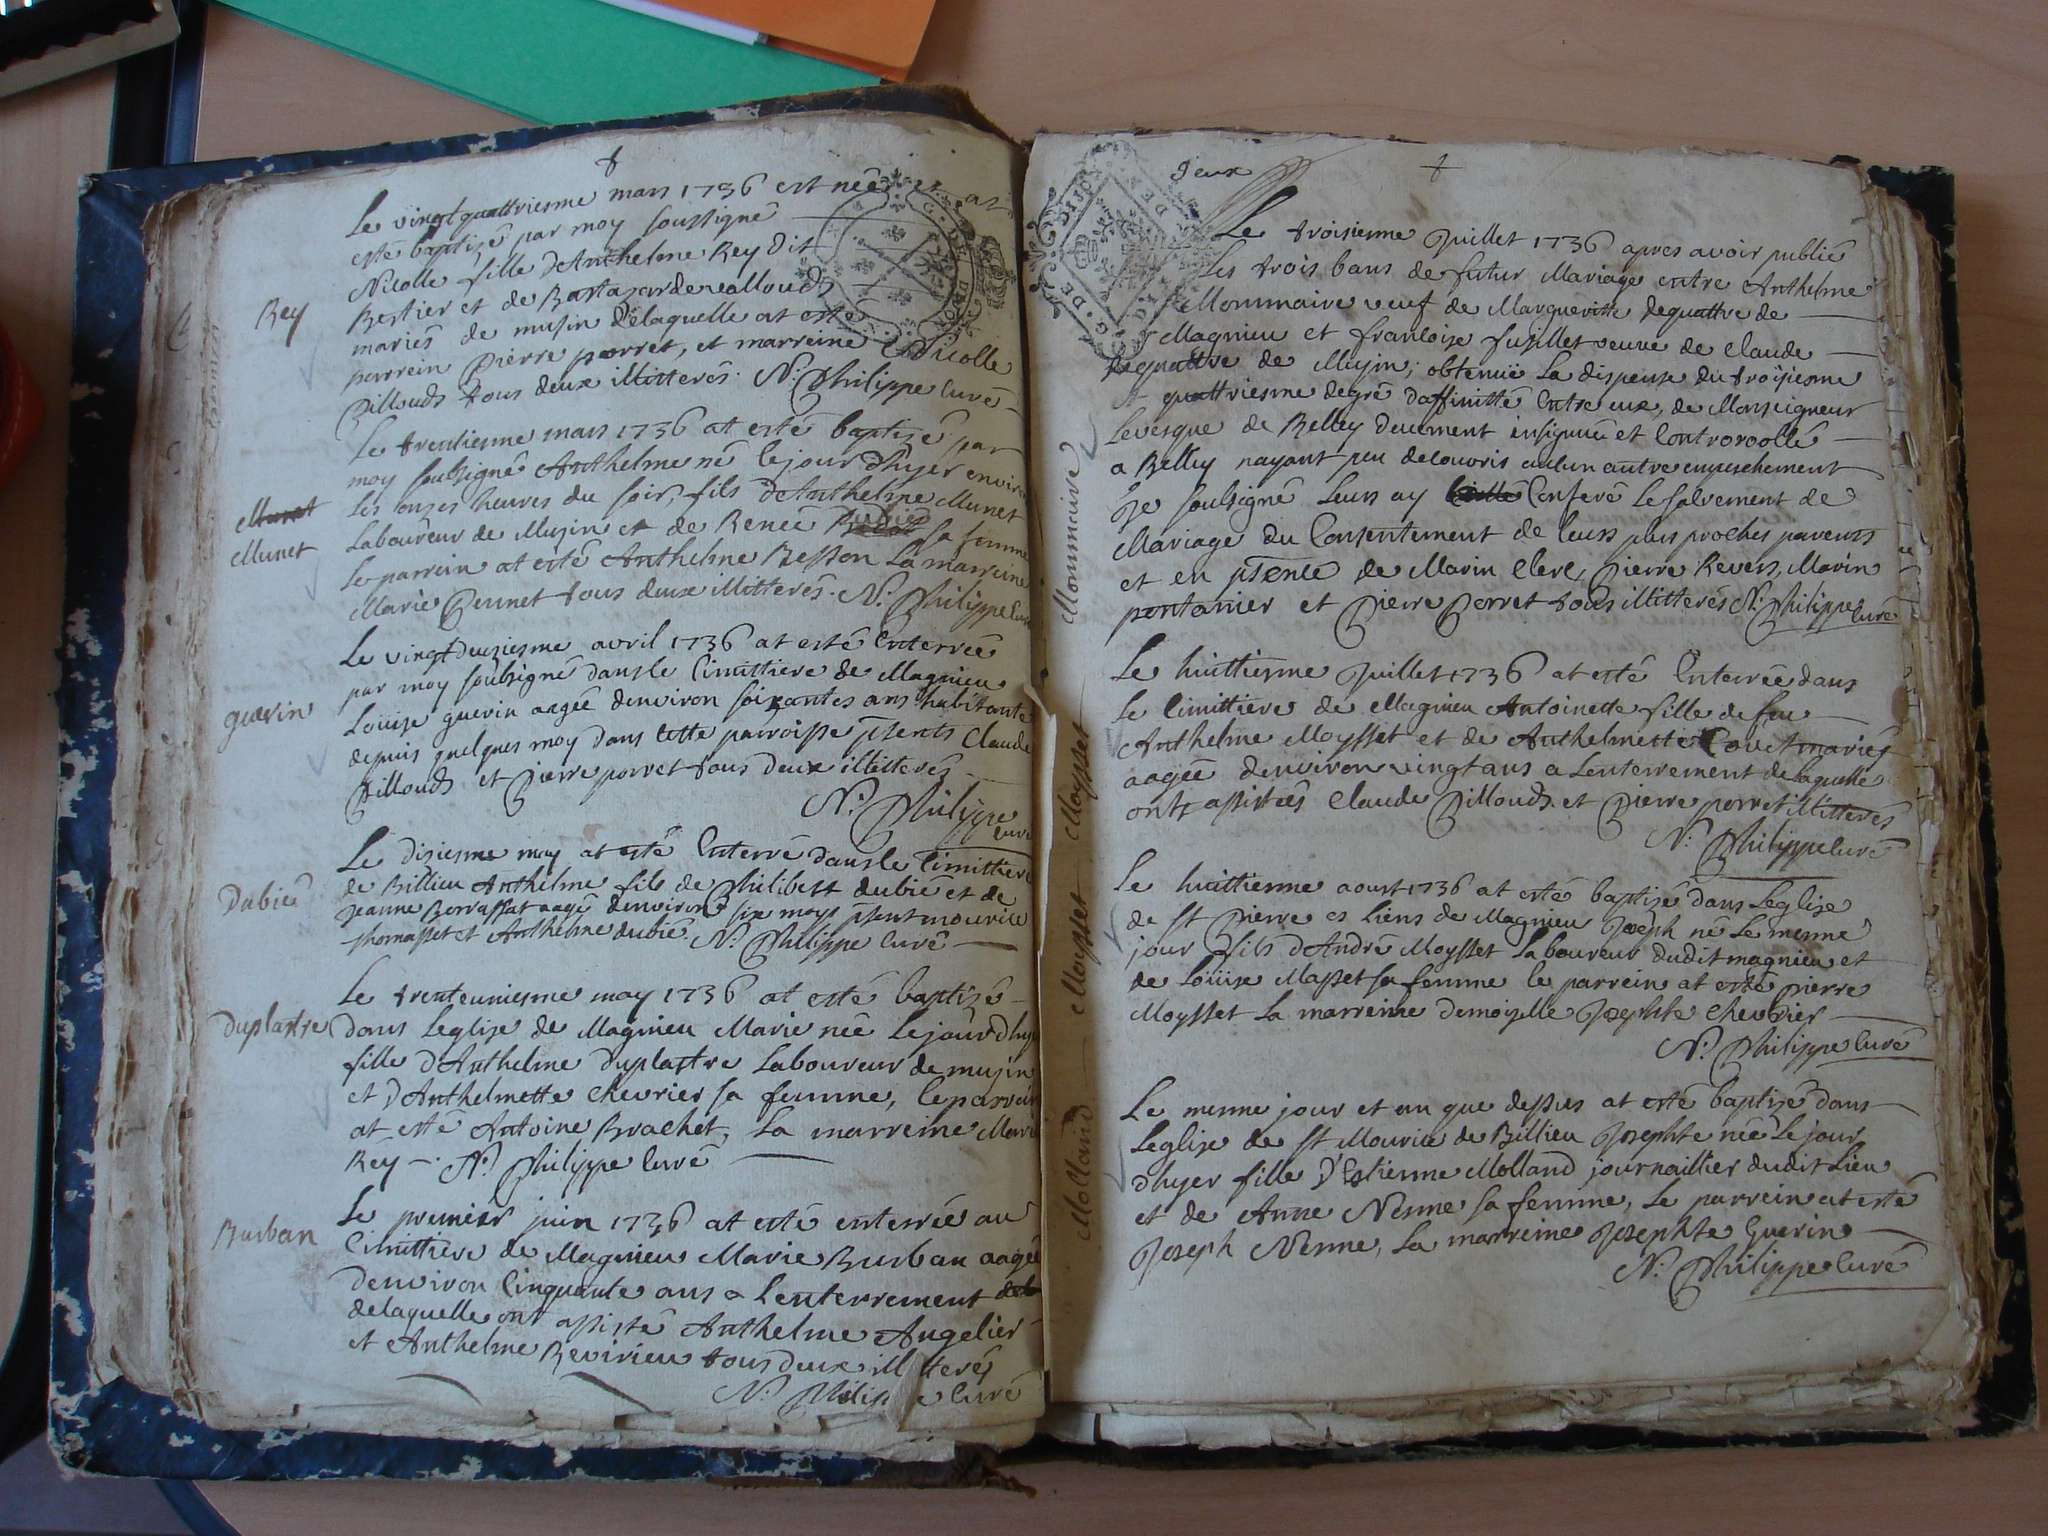 Le vingt quattriesme mars 1736 est née et at
esté baptizé par moy soussigné
Nicolle fille d'Anthelme Rey dit
Rey
Bestier et de
mariés de musin delaquelle at esté
parrein Pierre porret, et marreine Nicolle
Pillouds tous deux illitterés. N. Philippe curé
Le trentiesme mars 1736 at esté baptizé par
moy soubsigné Anthelme né le jour d'hyer environ
les onzes heures du soir, fils d'Anthelme Munet
Munet
Munet
laboureur de Musin et de Renée sa femme
le parrein at esté Anthelme Besson la marreine
Marie Peunet tous deux illitterés. N. Philippe curé
Le vingt deuziesme avril 1736 at esté Enterrée
par moy soubsigné dans le Cimittiere de Magnieu
guerin
Loüise guerin aagée denviron soixantes ans habitante
depuis quelques moy dans cette parroisse psents Claude
Pillouds et Pierre porret tous deux illitterés
N. Philippe
curé
Le diziesme may at esté Enterré dans le Cimittiere
Dubié
de Billieu Anthelme fils de Philibert dubié et de
Jeanne Borrassat aagé denviron six moys psent mourice
thomasset et Anthelme dubié N. Philippe curé
Le trenteuniesme may 1736 at esté baptizé
duplastre
dans Leglize de Magnieu Marie née Le jour d'hyer
fille d'Anthelme duplastre Laboureur de musin
et d'Anthelmette Chevrier sa femme, le parrein
at esté Antoine Brachet, La marreine Marie
Rey N. Philippe curé
Burban
Le premier juin 1736 at esté enterrée au
Cimittiere de Magnieu Marie Burban aagée
denviron Cinquante ans a Lenterrement
delaquelle ont assisté Anthelme Angelier
et Anthelme Revirieu tous deux illitterés
N. Philippe curé
deux
Le troisieme Juillet 1736 apres avoir publié
les trois bans de futur Mariage entre Anthelme
Mommaire
Mommaire veuf de Margueritte dequattre de
Magnieu et francoise fusillet veuve de Claude
dequattre de Musin; obtenüe La dispense du troisieme
et quattriesme degré d'affinitté Entre eux, de Monseigneur
Levesque de Belley deuement insignuée et Controrollé
a Belley nayant peu decouvris aulcun autre empeschement
Je soubsigné Leurs ay Conferé Le salrement de
Mariage du Consentement de leurs plus proches parents
et en psence de Marin Clerc, Pierre Revers, Marin
pontanier et Pierre Porret tous illitterés N. Philippe curé
Moysset
Le huittiesme Juillet 1736 at esté Enterrée dans
Le Cimittiere de Magnieu Antoinette fille de feu
Anthelme Moysset et de Anthelmette mariés
aagée denviron vingt ans a Lenterrement de Laquelle
onts assistés Claude Pillouds et Pierre porret illitterés
N. Philippe curé
Moysset
Le huittiesme aoust 1736 at esté baptizé dans Leglize
de St Pierre es Liens de Magnieu Joseph né Le mesme
jour fils d'André Moysset Laboureur dudit magnieu et
de Loüise Masset sa femme le parrein at esté pierre
Moysset La marreine demoizelle Josephte Chevrier
N. Philippe curé
Molland
Le mesme jour et an que dessus at esté baptizé dans
Leglize de St Mourice de Billieu Josephte née Le jour
d'hyer fille d'Estienne Molland journaillier dudit Lieu
et de Anne Nenne sa femme, Le parrein at esté
Joseph Nenne, La marreine Josephte Guerin
N. Philippe curé